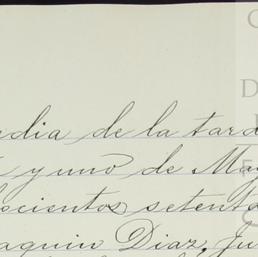 dia de la tard
yuno de May
ocientos setenta
aquin Diaz, Ju